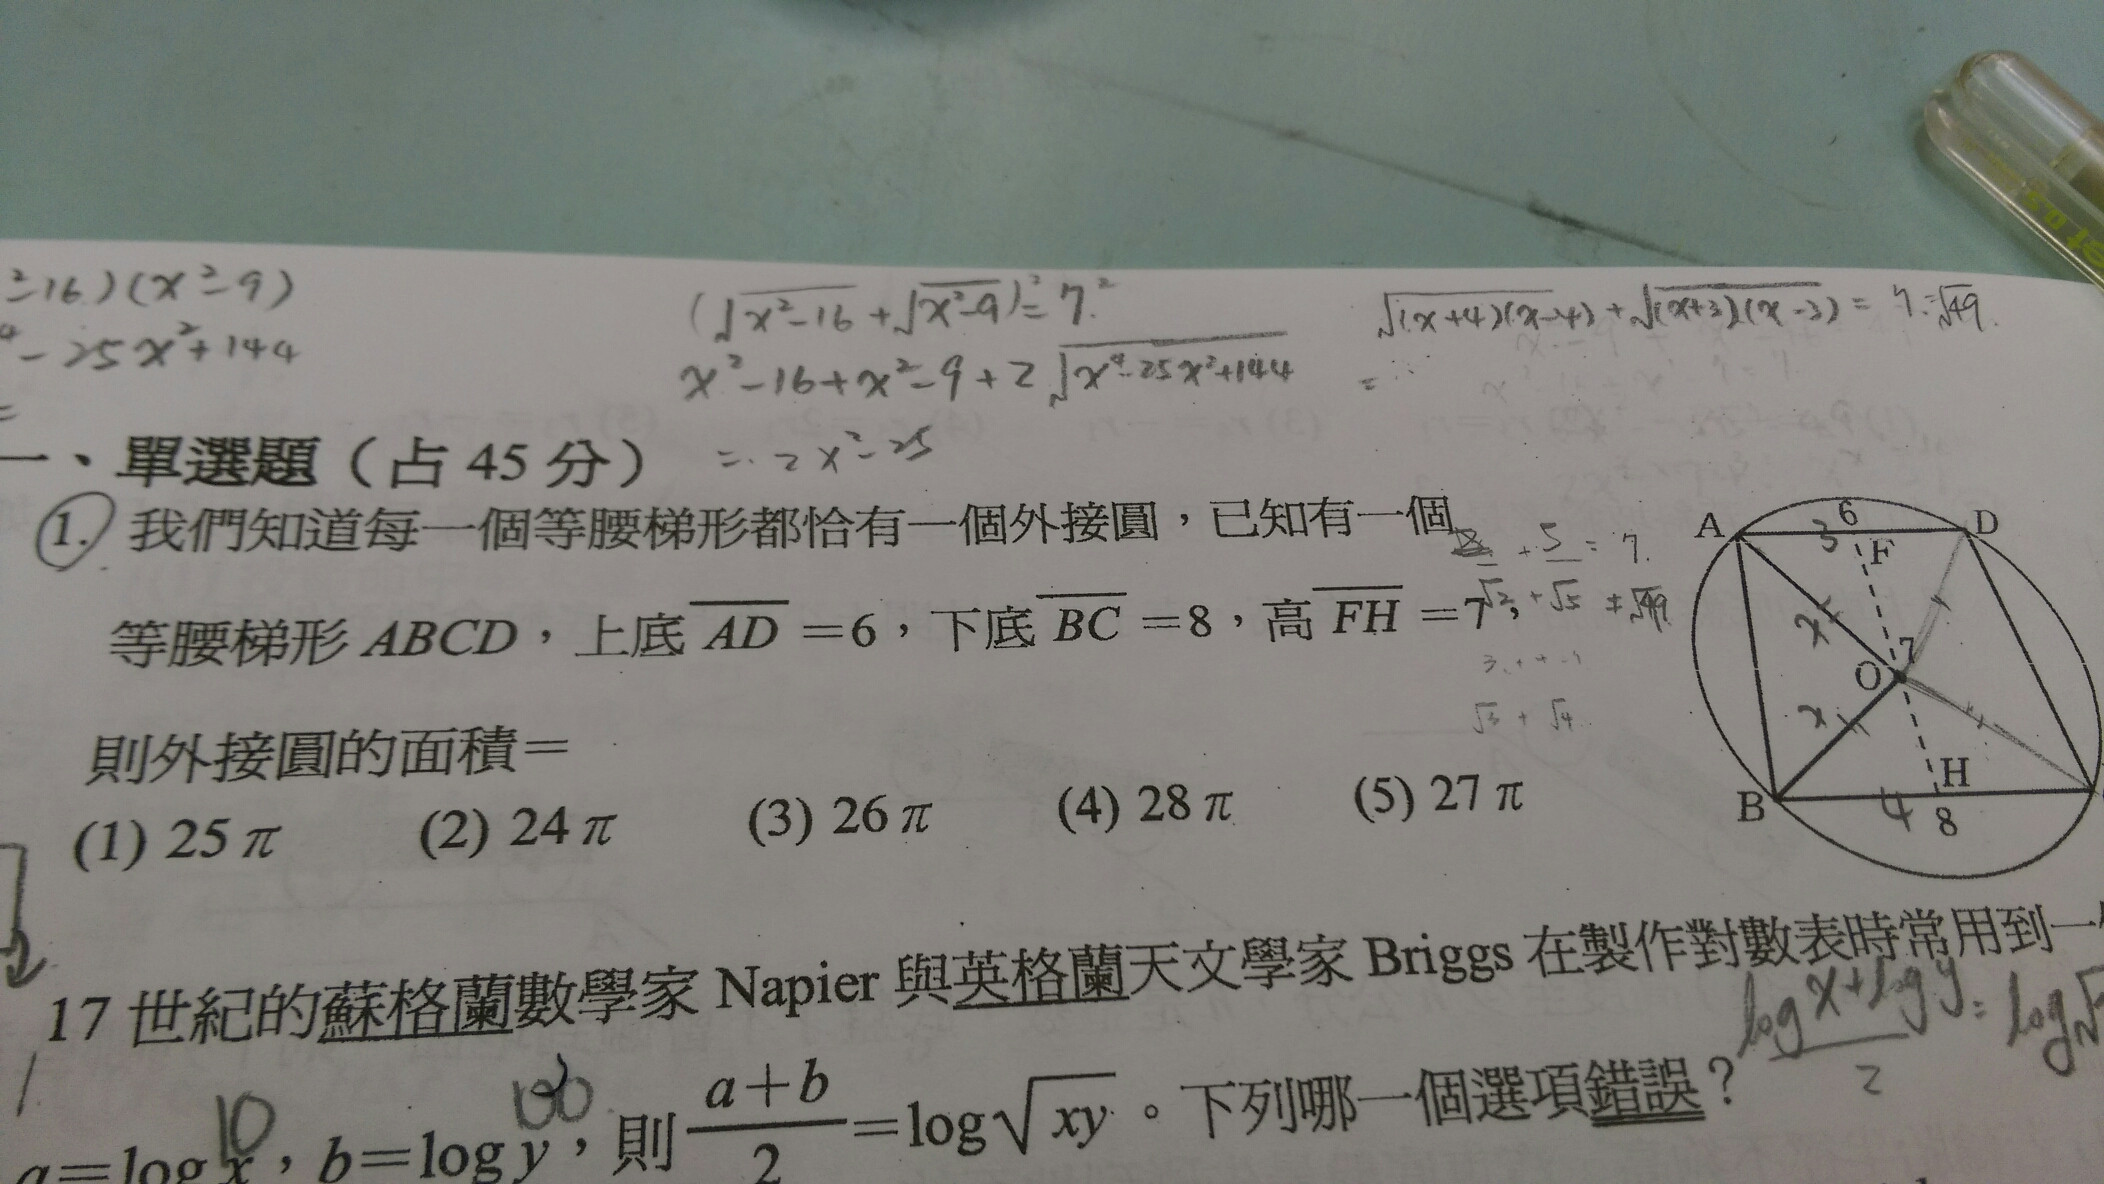 ²-16)(x²-9)
⁴-25x²+144
=
(√x²-16+√x²-9)²=7²
x²-16+x²-9+2√x⁴-25x²+144
=2x²-25
√(x+4)(x-4)+√(x+3)(x-3)=7=√49
=
一、單選題（占 45 分）
1. 我們知道每一個等腰梯形都恰有一個外接圓，已知有一個
等腰梯形 ABCD，上底 AD =6，下底 BC =8，高 FH =7，
則外接圓的面積＝
(1) 25π (2) 24π (3) 26π (4) 28π (5) 27π
+5=7
√2+√5≠√49
√3+√4
A 6 D
3 F
x
O 7
x
H
B 4 8
17 世紀的蘇格蘭數學家 Napier 與英格蘭天文學家 Briggs 在製作對數表時常用到一
logx+logy/2=log√
10 100
a=log x，b=log y，則 a+b/2=log√xy。下列哪一個選項錯誤？